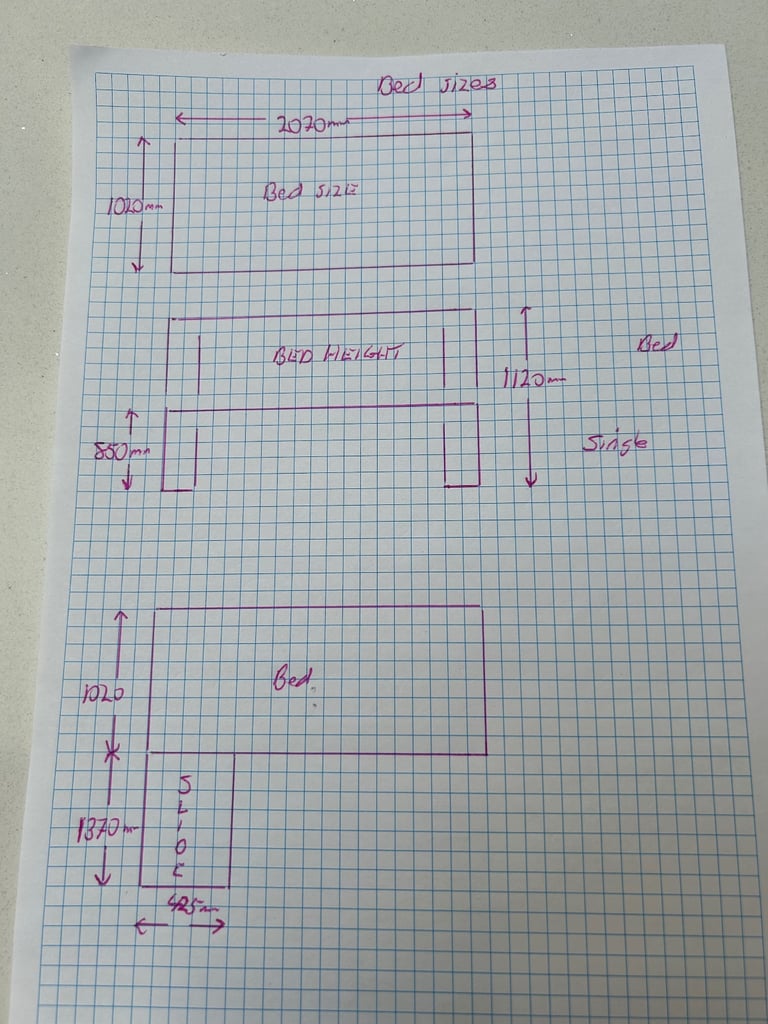 Bed sizes
2070mm
Bed SIZE
1020mm
BED HEIGHT
Bed
1120mm
850mm
Single
Bed
1020
SLIDE
1370m
425m